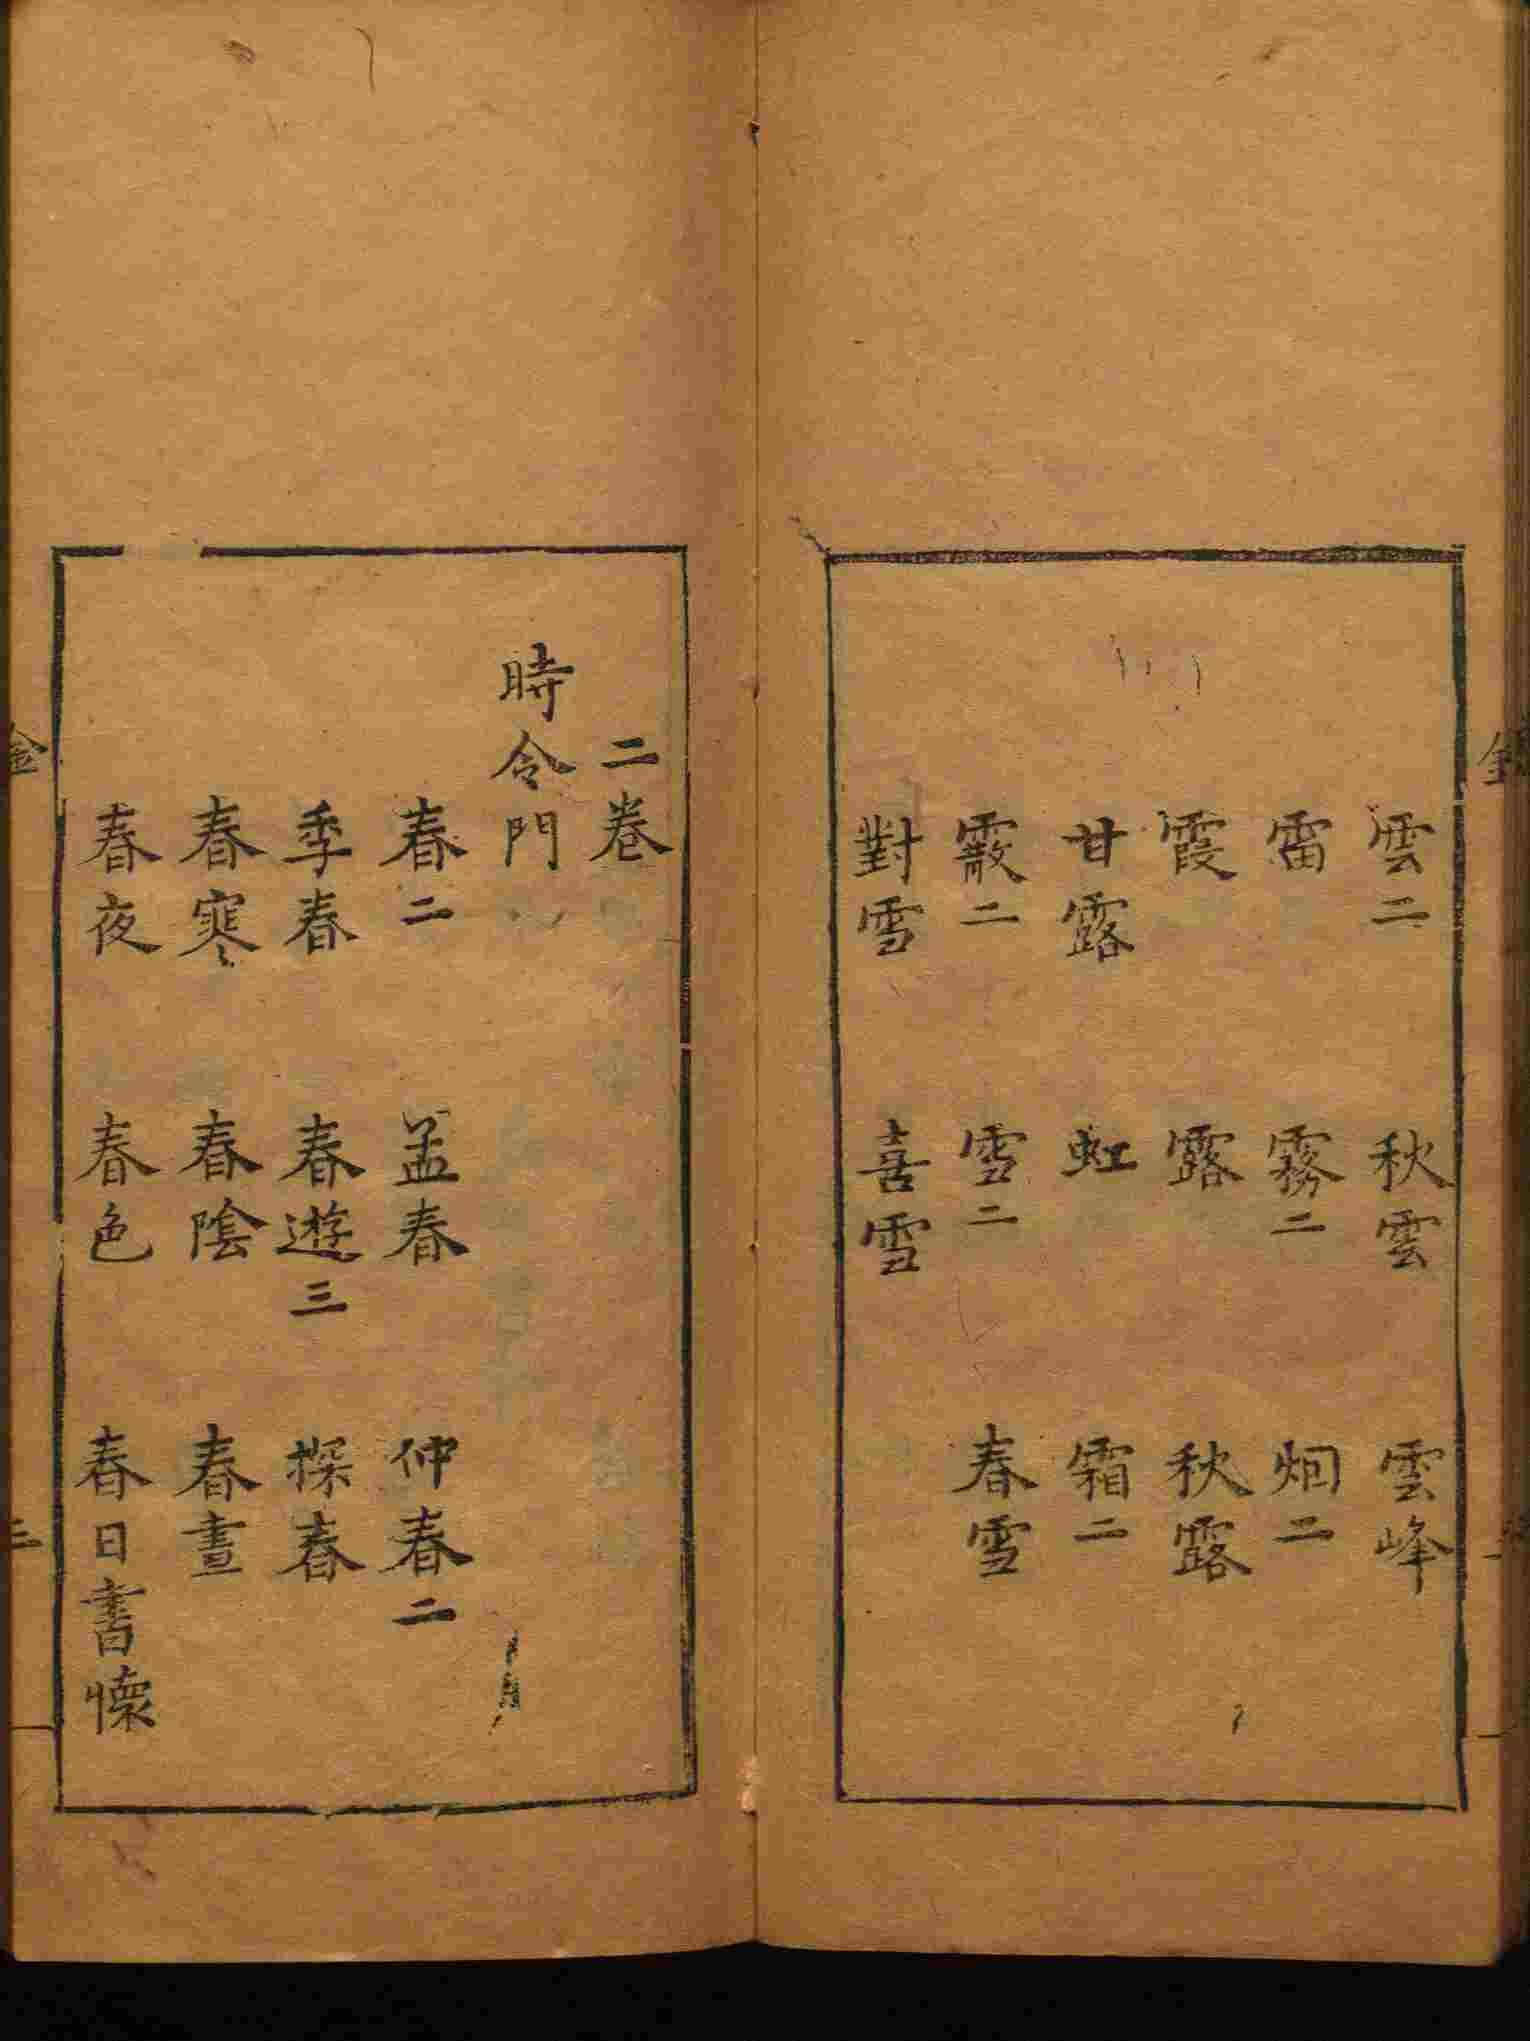 雲二 秋雲 雲峰
雷 霧二 烟二
霞 露 秋露
甘露 虹 霜二
霰二 雪二 春雪
對雪 喜雪
二卷
時令門
春二 孟春 仲春二
季春 春遊三 探春
春寒 春陰 春晝
春夜 春色 春日書懷